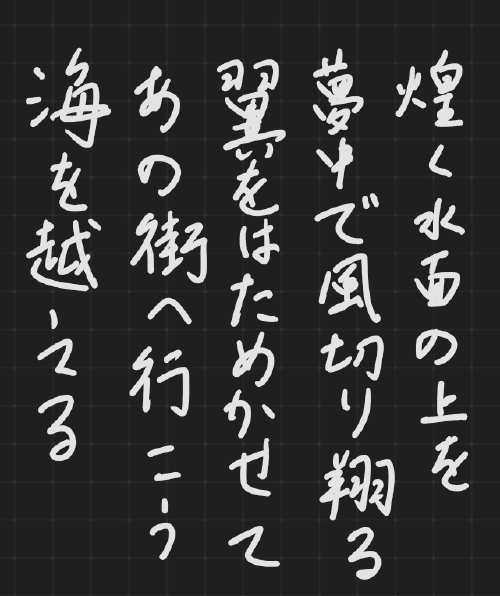 煌く水面の上を
夢中で風切り翔る
翼をはためかせて
あの街へ行こう
海を越える